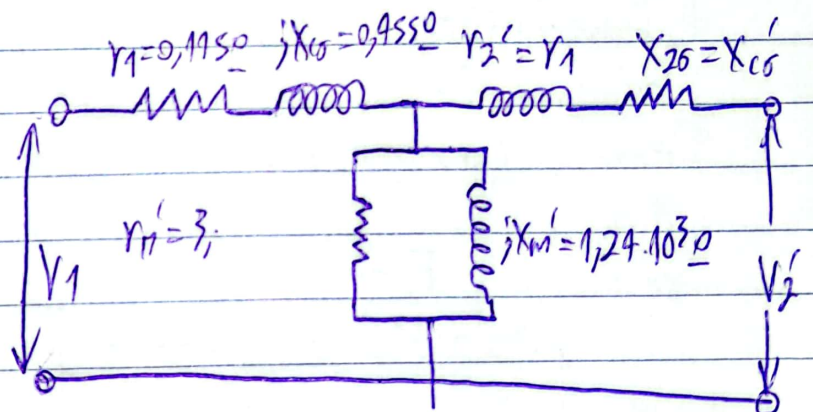 r1=0,115Ω jXσ=0,455Ω r2'=r1 X2σ=Xσ'
rm'=3; jXm'=1,24.10³Ω
V1 V2'